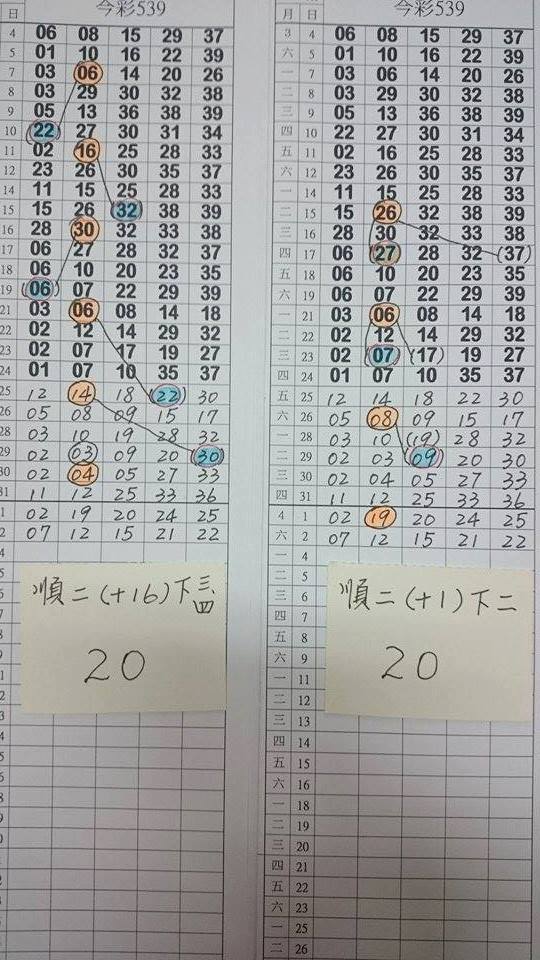 今彩539
日
4 06 08 15 29 37
5 01 10 16 22 39
7 03 06 14 20 26
8 03 29 30 32 38
9 05 13 36 38 39
10 (22) 27 30 31 34
11 02 16 25 28 33
12 23 26 30 35 37
14 11 15 25 28 33
15 15 26 32 38 39
16 28 30 32 33 38
17 06 27 28 32 37
18 06 10 20 23 35
19 (06) 07 22 29 39
21 03 06 08 14 18
22 02 12 14 29 32
23 02 07 17 19 27
24 01 07 10 35 37
25 12 14 18 (22) 30
26 05 08 09 15 17
28 03 10 19 28 32
29 02 03 09 20 (30)
30 02 04 05 27 33
31 11 12 25 33 36
1 02 19 20 24 25
2 07 12 15 21 22
順二(+16)下三四
20
今彩539
月 日
3 4 06 08 15 29 37
六 5 01 10 16 22 39
一 7 03 06 14 20 26
二 8 03 29 30 32 38
三 9 05 13 36 38 39
四 10 22 27 30 31 34
五 11 02 16 25 28 33
六 12 23 26 30 35 37
一 14 11 15 25 28 33
二 15 15 26 32 38 39
三 16 28 30 32 33 38
四 17 06 27 28 32 (37)
五 18 06 10 20 23 35
六 19 06 07 22 29 39
一 21 03 06 08 14 18
二 22 02 12 14 29 32
三 23 02 07 (17) 19 27
四 24 01 07 10 35 37
五 25 12 14 18 22 30
六 26 05 08 09 15 17
一 28 03 10 (19) 28 32
二 29 02 03 09 20 30
三 30 02 04 05 27 33
四 31 11 12 25 33 36
4 1 02 19 20 24 25
六 2 07 12 15 21 22
一 4
二 5
三 6
四 7
五 8
六 9
一 11
二 12
三 13
四 14
五 15
六 16
一 18
二 19
三 20
四 21
五 22
六 23
一 25
二 26
順二(+1)下二
20